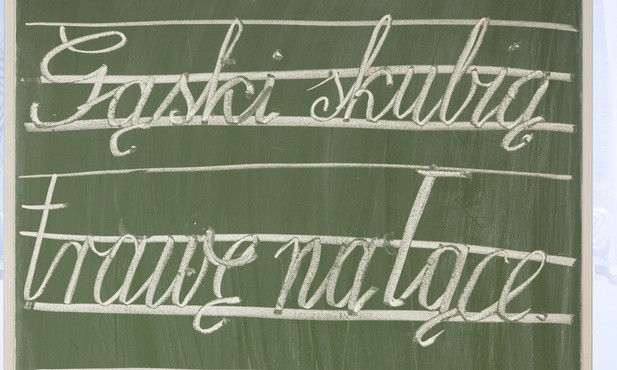 Gąski skubią
trawę na łące.